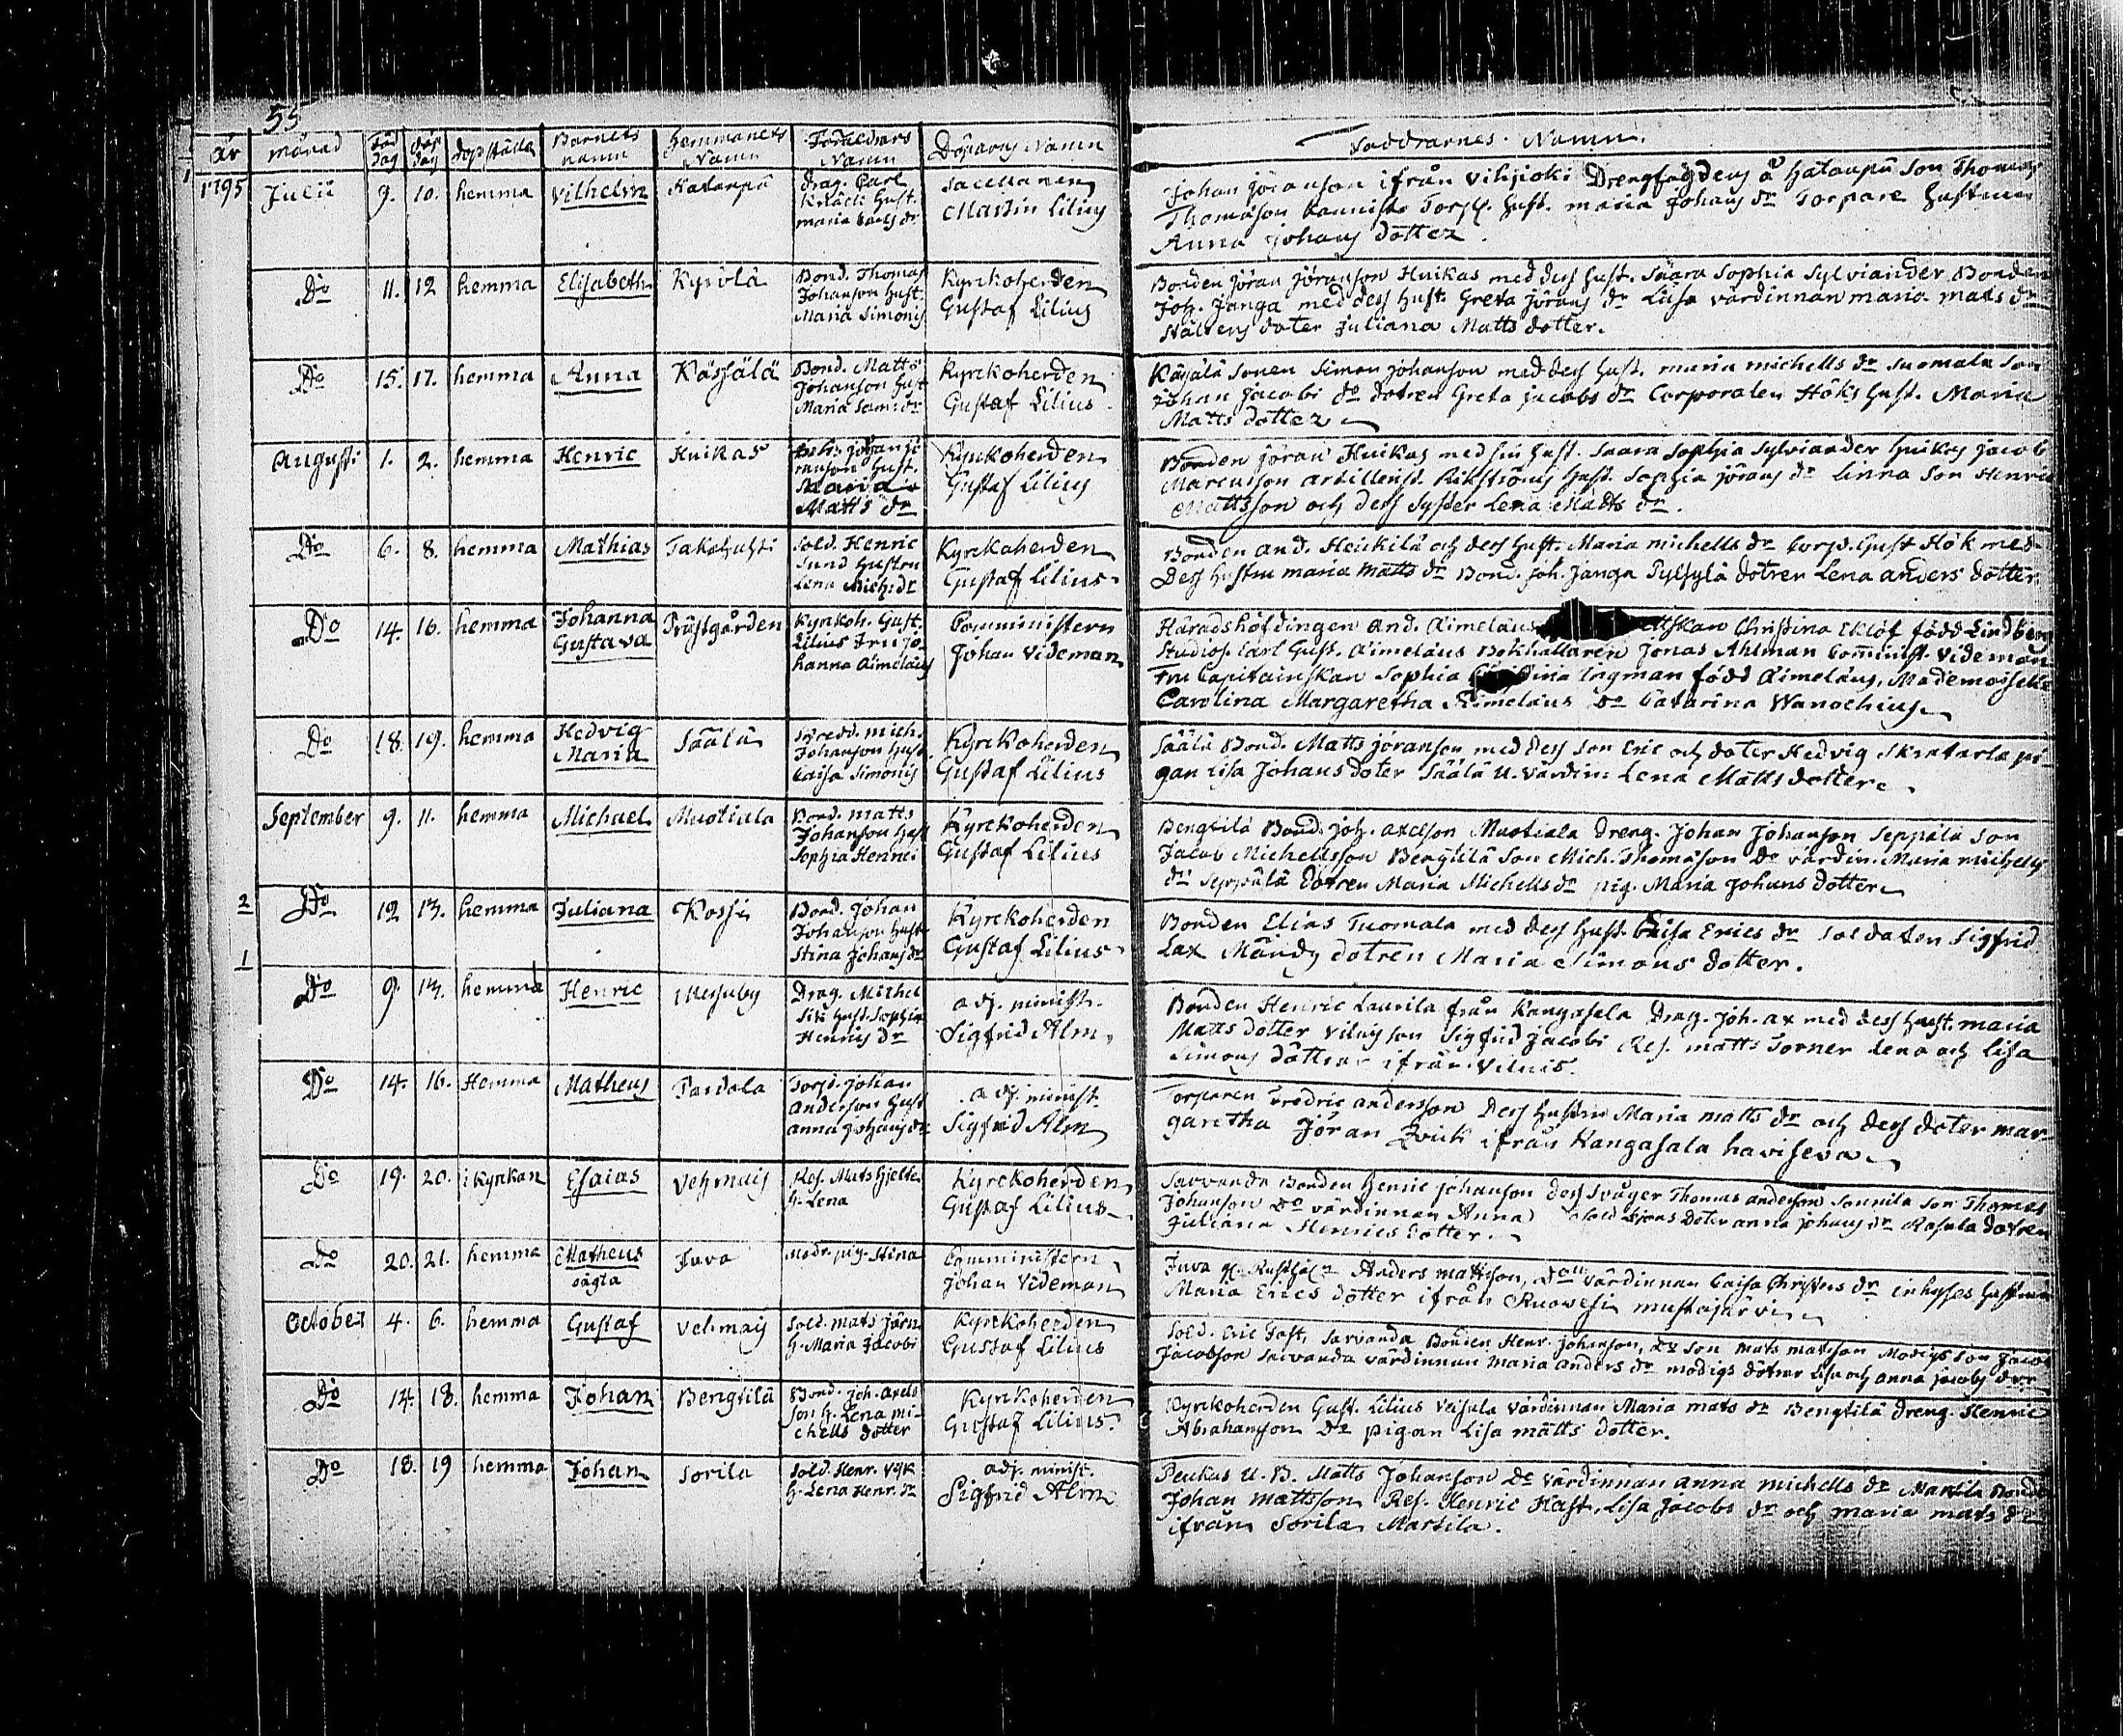 55
år månad Föd dag döp dag dopställe Barnets namn Hemmanets Namn Föräldrars Namn Döparens Namn Faddrarnes Namn
1795 Julii 9. 10. hemma Vilhelm
Drag. Carl
Hust.
maria Carls dr
Sacellanen
Martin Lilius
Johan jöranson ifrån Vihjioki
Son Thomas
Thomason Torp. Hust. maria Johans dr Torpare Hustrun
Anna Johans dotter.
Do 11. 12 hemma Elisabeth Kyrölä
Bond. Thomas
Johanson Hust.
Maria Simonis
Kyrckoherden
Gustaf Lilius
Bonden Jöran Jöranson Huikas med dess Hust. Saara Sophia Sylviander Bonden
Joh. Janga med dess Hust. Greta Jörans dr Liisa värdinnan maria matts dr
doter Juliana Matts dotter.
Do 15. 17. hemma Anna Kässälä
Bond. Matts
Johanson Hust
Maria Sam: dr
Kyrckoherden
Gustaf Lilius
Käsälä sonen Simon Johanson med dess Hust. maria michells dr Suomala son
Johan Jacobi do dotren Greta jacobs dr Corporalen Höks Hust. Maria
Matts dotter
Augusti 1. 2. hemma Henric Huikas
Johan jö-
ranson Hust.
Maria
Matts dr
Kyrckoherden
Gustaf Lilius
Bonden jöran Huikas med sin Hust. Saara Sophia Sylviander Huikas jacob
Marcusson Hust. Sophia jörans dr Linna Son Henric
Mattsson och dess Syster Lena Matts dr.
Do 6. 8. hemma Mathias Takahuhti
Sold. Henric
Lund Hustru
Lena Mich: dr
Kyrckoherden
Gustaf Lilius
Bonden And. Heickilä och dess Hust. Maria michells dr Corp. Gust Hök med
Dess Hustru maria Matts dr Bond. Joh. Janga dotren Lena anders dotter
Do 14. 16. hemma Johanna
Gustava
Prästgården
Kyrkoh. Gust.
Lilius Fru Jo-
hanna Aimelæus
Comministern
Johan Videman
Häradshöfdingen And. Aimelæus Christina Eklöf född Lindberg
Studios. Carl Gust. Aimelæus Bokhållaren Jonas Ahlman Com̄inist. Videman
Fru Capitainskan Sophia Ingman född Aimelæus, Mademoiselle
Carolina Margaretha Aimelæus do Catarina Wanochius
Do 18. 19. hemma Hedvig
Maria
Säälä
mich.
Johanson Hust.
Caisa Simonis
Kyrckoherden
Gustaf Lilius
Säälä Bond. Matts jöranson med dess Son Eric och doter Hedvig pi-
gan Lisa Johans doter Säälä U. värdin: Lena Matts dotter.
September 9. 11. hemma Michael Mustiala
Bond. matts
Johanson Hust
Sophia Henrici
Kyrckoherden
Gustaf Lilius
Bengtilä Bond. Joh. axelson Mustiala Dreng. Johan Johanson Seppälä Son
Jacob Michellsson Bengtilä Son Mich. Thomason do värdin. Maria michells
dr Seppälä dotren Maria Michells dr pig. Maria Johans dotter
2
Do 12 13. hemma Juliana Kossi
Bond. Johan
Johanson Hust
Stina Johans dr
Kyrckoherden
Gustaf Lilius
Bonden Elias Tuomala med dess Hust. Caisa Erics dr Soldaten Sigfrid
Lax dotren Maria Simons dotter.
1
Do 9. 13. hemma Henric Messuby
Drag. Michel
Hust. Sophia
Henrics dr
adj. minist.
Sigfrid Alm
Bonden Henric Laurila från Kangasala Drag. Joh. ax med dess Hust. maria
Matts dotter Son Sigfrid Jacobi Ref. matts Torner Lena och Lisa
Simons döttrar ifrån
Do 14. 16. Hemma Matheus
Torp. Johan
Anderson Hust
anna Johans dr
adj. minist.
Sigfrid Alm
Torparen Fredric andersson Dess Hustru Maria matts dr och dess doter mar-
garetha Jöran Qvick ifrån Kangasala haviseva
Do 19. 20. i Kyrkan Esaias Vehmais
Res. Mats Hjelte
H. Lena
Kyrckoherden
Gustaf Lilius
Sarvanda Bonden Henric Johanson dess Svåger Thomas anderson Sonnila Son Thomas
Johanson do värdinnan Anna Doter anna Johans dr dotren
Juliana Henrics dotter.
Do 20. 21. hemma Matheus
oägta
Juva
Modr. pig. Stina
Comministern
Johan Videman
Juva Anders mattson, värdinnan Caisa Christers dr inhyses Hustrun
Maria Erics dotter ifrån Ruowesi mustajärvi
October 4. 6. hemma Gustaf Vehmais
Sold. mats Järn
H. Maria Jacobi
Kyrckoherden
Gustaf Lilius
Sold. Eric Fast, Sarvanda Bonden Henr. Johanson, do son mats matsson Modigs son Jacob
Jacobson Sarvanda värdinnan maria anders dr modigs dötrar Lisa och anna Jacobs dr
Do 14. 18. hemma Johan Bengtilä
Bond. Joh. axels
son H. Lena mi-
chells dotter
Kyrckoherden
Gustaf Lilius
Kyrckoherden Gust. Lilius värdinnan Maria mats dr Bengtilä Dreng. Henric
Abrahamson do pigan Lisa matts dotter.
Do 18. 19 hemma Johan Sorila
Sold. Henr. Vijk
H. Lena Henr. dr
adj. minist.
Sigfrid Alm
Peukus U. B. Matts Johanson do värdinnan anna michells dr Martila Bonden
Johan mattsson Res. Henric Hast. Lisa Jacobs dr och maria mats dr
ifrån Sorila Martila.